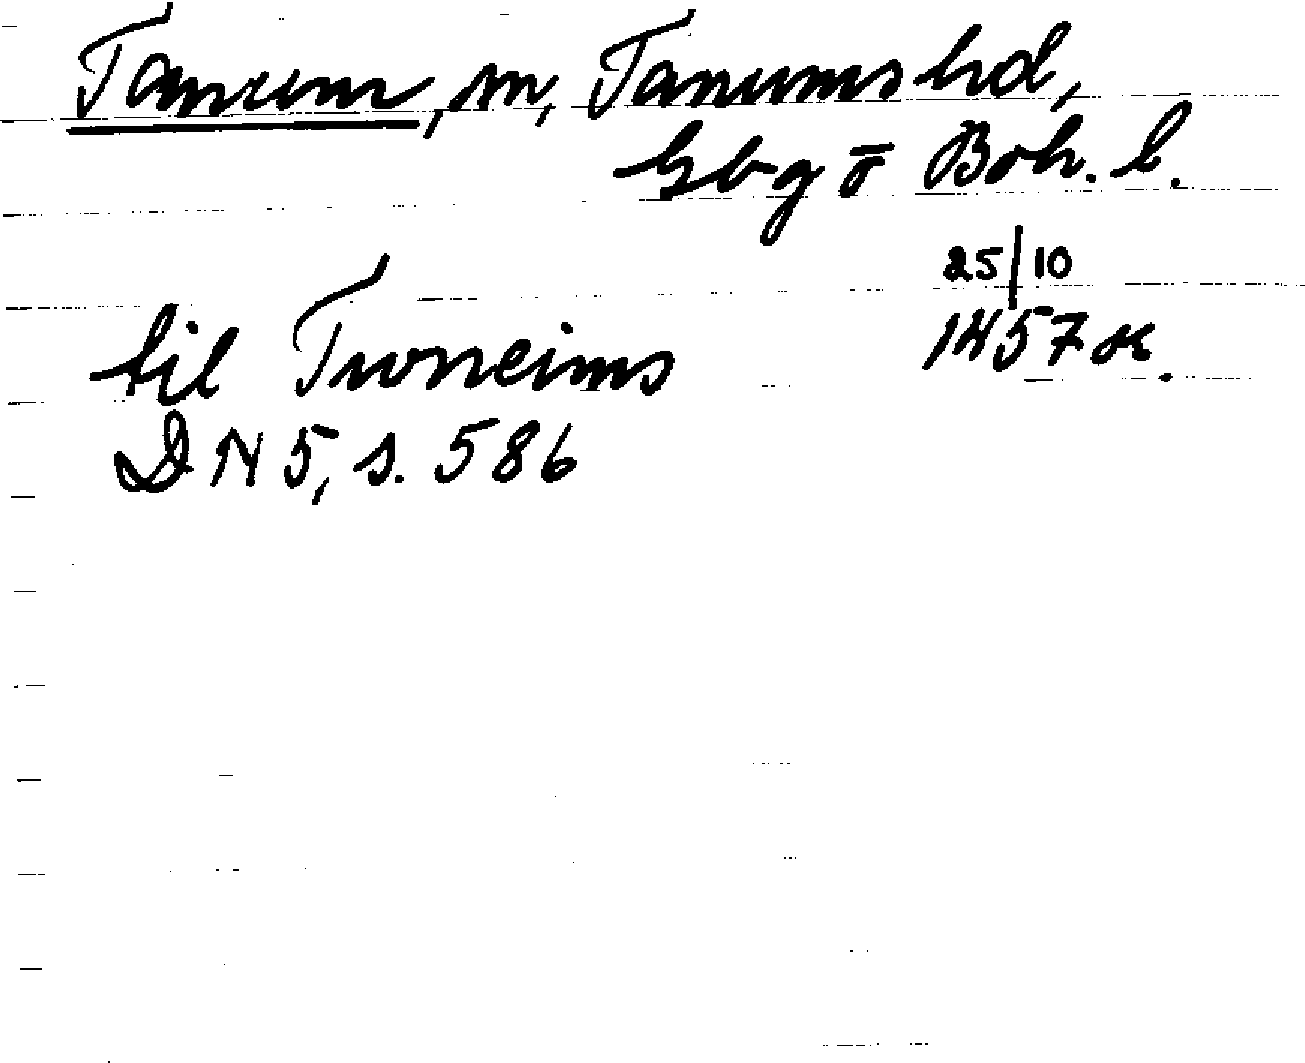 Tanum, sn, Tanums hd,
Gbg o Boh. l.
25/10
1457 or.
til Tuneims
DN 5, s. 586